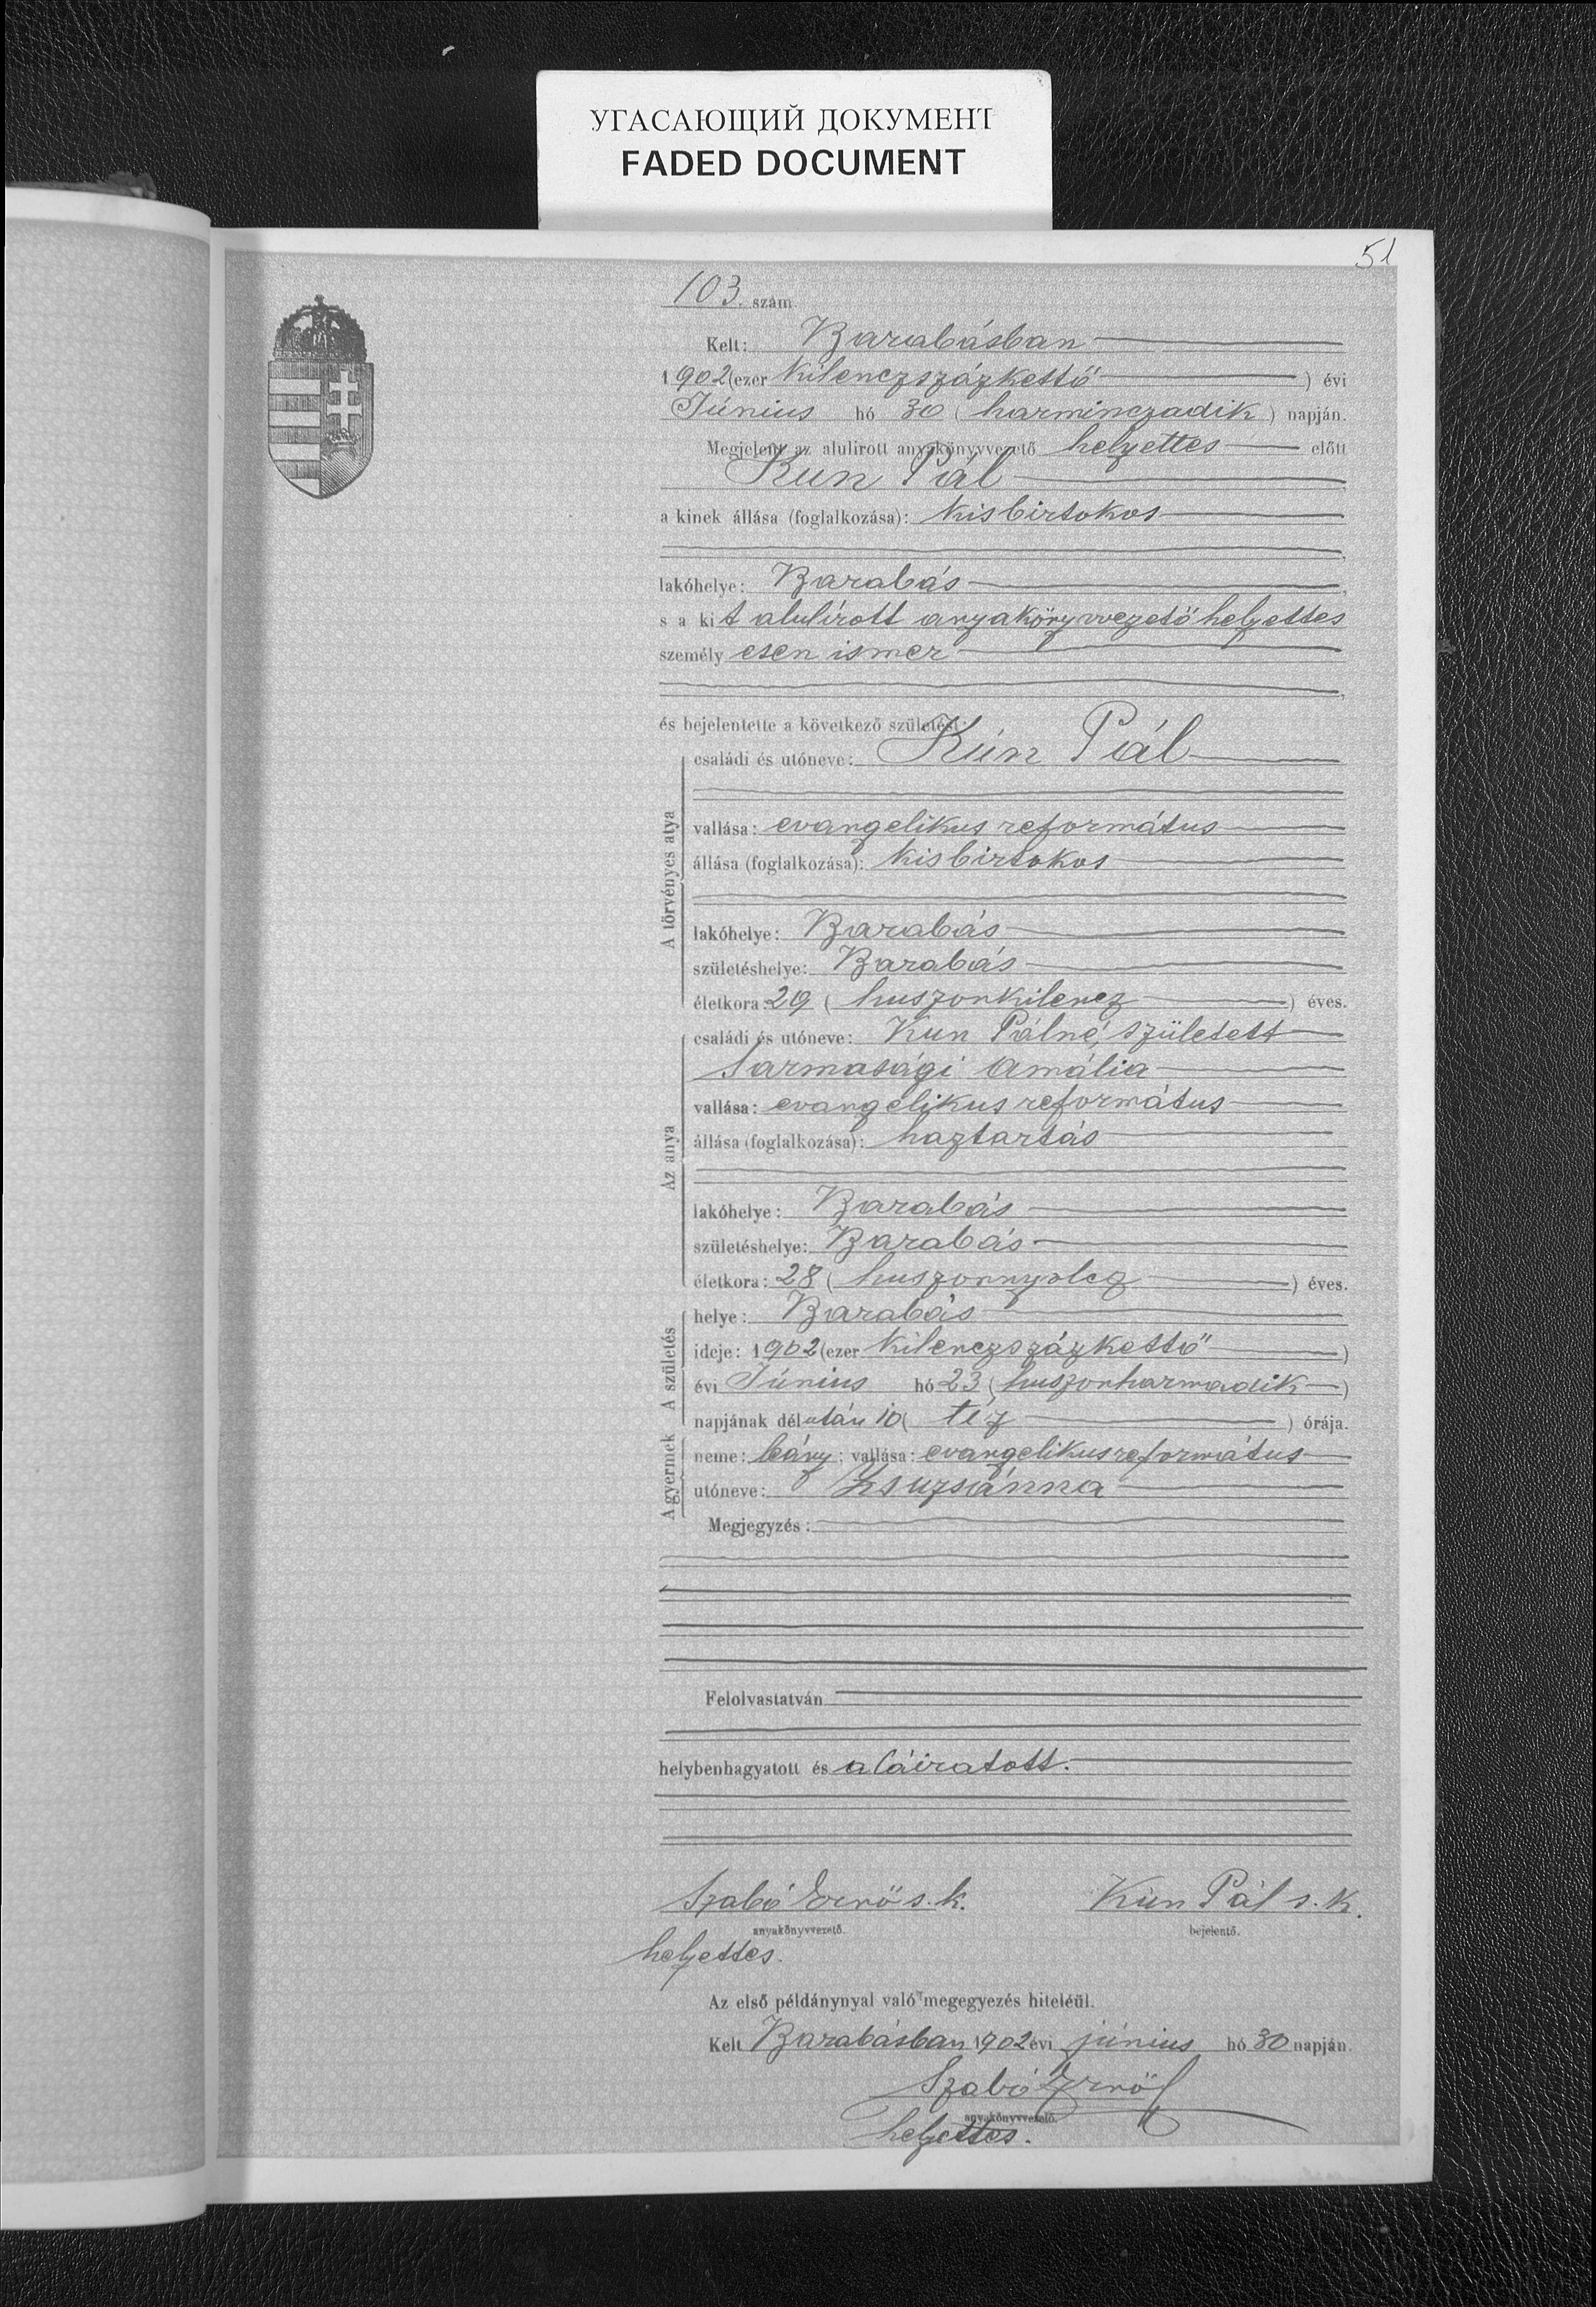 УГАСАЮЩИЙ ДОКУМЕНТ
FADED DOCUMENT
51
103. szám.
Kelt: Barabásban
1902 (ezer kilenczszázkettő) évi
Június hó 30 (harminczadik) napján.
Megjelent az alulirott anyakönyvvezető helyettes előtt
Kun Pál
a kinek állása (foglalkozása): kisbirtokos
lakóhelye: Barabás
s a kit alulírott anyakönyvvezető helyettes
személyesen ismer
és bejelentette a következő születést:
A törvényes atya
családi és utóneve: Kún Pál
vallása: evangelikus református
állása (foglalkozása): kisbirtokos
lakóhelye: Barabás
születéshelye: Barabás
életkora: 29 (huszonkilencz) éves.
Az anya
családi és utóneve: Kun Pálné, született
Sarmasági Amália
vallása: evangélikus református
állása (foglalkozása): haztartás
lakóhelye: Barabás
születéshelye: Barabás
életkora: 28 (huszonnyolcz) éves.
A születés
helye: Barabás
ideje: 1902 (ezer kilenczszázkettő)
évi Június hó 23 (huszonharmadik)
napjának délután 10 (tíz) órája.
A gyermek
neme: leány; vallása: evangelikus református
utóneve: Zsuzsánna
Megjegyzés:
Felolvastatván
helybenhagyatott és aláiratott.
Szabó Ernő s. k. Kún Pál s. k.
anyakönyvvezető. bejelentő.
helyettes.
Az első példánynyal való megegyezés hiteléül.
Kelt Barabásban 1902 évi június hó 30 napján.
Szabó Ernő
anyakönyvvezető.
helyettes.